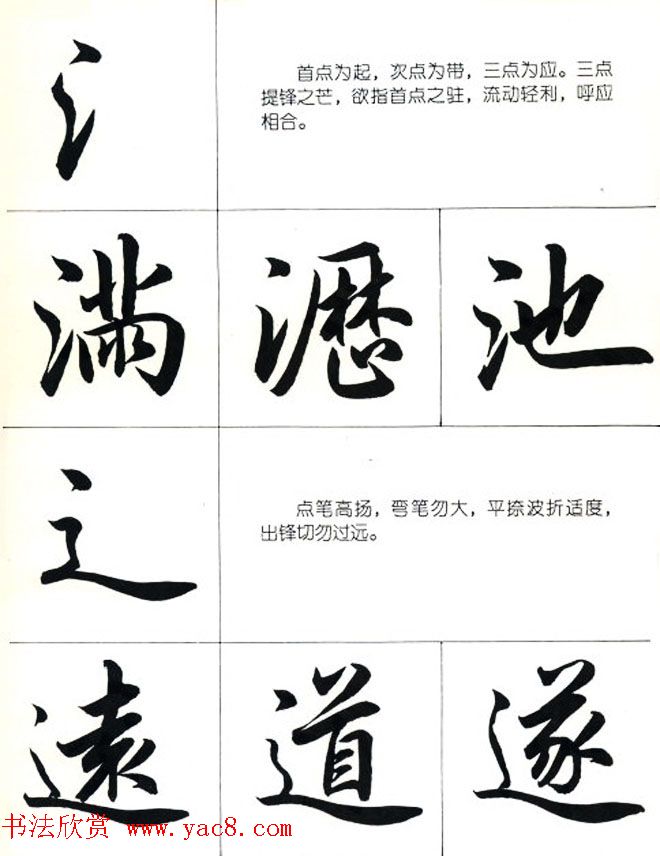 氵
首点为起，次点为带，三点为应。三点
提锋之芒，欲指首点之驻，流动轻利，呼应
相合。
满 池
辶
点笔高扬，弯笔勿大，平捺波折适度，
出锋切勿过远。
遠 道 遂
书法欣赏 www.yac8.com